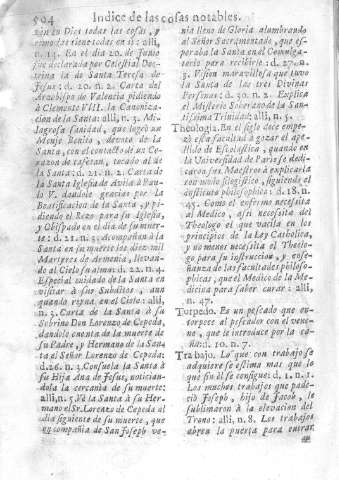 504 Indice de las cosas notables.
rón en Dios todas las cosas, y
como las tiene todas en sí: alli,
n. 14. En el dia 20. de Junio
fue declarada por Celestial Doc-
trina la de Santa Teresa de
Jesus: d. 20. n. 2. Carta del
Arzobispo de Valencia pidiendo
à Clemente VIII. la Canonizacion
de la Santa: alli, n. 3. Mi-
lagrosa sanidad, que logrò un
Monje Benito, devoto de la
Santa, con el contacto de un Co-
razon de tafetan, tocado al de
la Santa: d. 21. n. 2. Carta de
la Santa Iglesia de Avila à Pau-
lo V. dandole gracias por la
Beatificacion de la Santa, y pi-
diendo el Rezo para su Iglesia,
y Obispado en el dia de su muer-
te: d. 21. n. 3. Acompañan à la
Santa en su muerte los diez mil
Martyres de Armenia, llevan-
do al Cielo su alma: d. 22. n. 4.
Especial cuidado de la Santa en
visitar à sus Subditos, aun
quando reyna en el Cielo: alli,
n. 3. Carta de la Santa à su
Sobrino Don Lorenzo de Cepeda,
dandole cuenta de la muerte de
su Padre, y Hermano de la San-
ta el Señor Lorenzo de Cepeda:
d. 26. n. 3. Consuela la Santa à
su Hija Ana de Jesus, notician-
dola la cercania de su muerte:
alli, n. 5. Vé la Santa à su Her-
mano el Sr. Lorenzo de Cepeda al
dia siguiente de su muerte, que
en compañia de San Joseph ve-
nia lleno de Gloria alumbrando
al Señor Sacramentado, que es-
peraba la Santa en el Comulga-
torio para recibirle: d. 27. n.
3. Vision maravillosa que tuvo
la Santa de las tres Divinas
Personas: d. 30. n. 2. Explica
el Misterio Soberano de la San-
tissima Trinidad: alli, n. 5.
Theologia. En el siglo doce empe-
zó esta facultad à gozar el ape-
llido de Escolastica, quando en
la Universidad de Paris se dedi-
caron sus Maestros à explicarla
con modo silogistico, siguiendo el
instituto philosophico: d. 18. n.
45. Como el enfermo necesita
al Medico, asi necesita del
Theologo el que vacila en los
principios de la Ley Catholica,
y no menos necesita el Theolo-
go para su instruccion, y en-
señanza de las facultades philoso-
phicas, que el Medico de la Me-
dicina para saber curar: alli,
n. 47.
Torpedo. Es un pescado que en-
torpece al pescador con el vene-
no, que le introduce por la ca-
ña: d. 10. n. 7.
Trabajo. Lo que con trabajo se
adquiere se estima mas que lo
que sin él se consigue: d. 1. n. 1.
Los muchos trabajos que pade-
ció Joseph, hijo de Jacob, le
sublimaron à la elevacion del
Trono: alli, n. 8. Los trabajos
abren la puerta para entrar